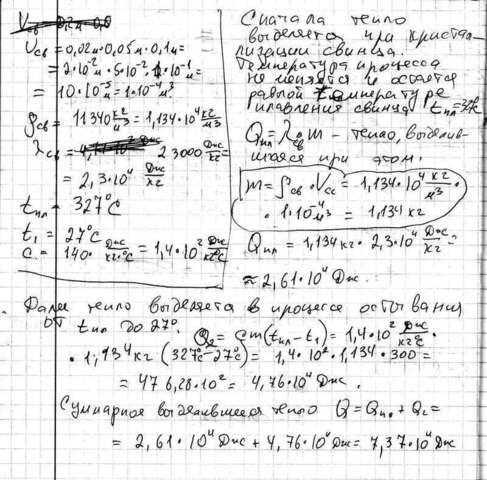 Vсв = 0,02м·0,05м·0,1м =
= 2·10⁻²м·5·10⁻²·1·10⁻¹м =
= 10·10⁻⁵м = 1·10⁻⁴м³
ρсв = 11340 кг/м³ = 1,134·10⁴ кг/м³
λсв = 23000 Дж/кг =
= 2,3·10⁴ Дж/кг
tпл = 327°C
t₁ = 27°C
c = 140· Дж/кг·°C = 1,4·10² Дж/кг°C
Сначала тепло
выделяется при кристал-
лизации свинца.
Температура процесса
не меняется и остается
равной температуре
плавления свинца tпл = 327
Qпл = λсв m – тепло, выделив-
шееся при этом.
m = ρсв · Vсв = 1,134·10⁴ кг/м³ ·
· 1·10⁻⁴м³ = 1,134 кг
Qпл = 1,134кг · 2,3·10⁴ Дж/кг =
≈ 2,61·10⁴ Дж.
Далее тепло выделяется в процессе остывания
от tпл до 27°. Q₂ = cm(tпл – t₁) = 1,4·10² Дж/кг°C ·
· 1,134 кг (327°C – 27°C) = 1,4·10²·1,134·300 =
= 476,28·10² = 4,76·10⁴ Дж.
Суммарное выделившееся тепло Q = Qпл + Q₂ =
= 2,61·10⁴ Дж + 4,76·10⁴ Дж = 7,37·10⁴ Дж